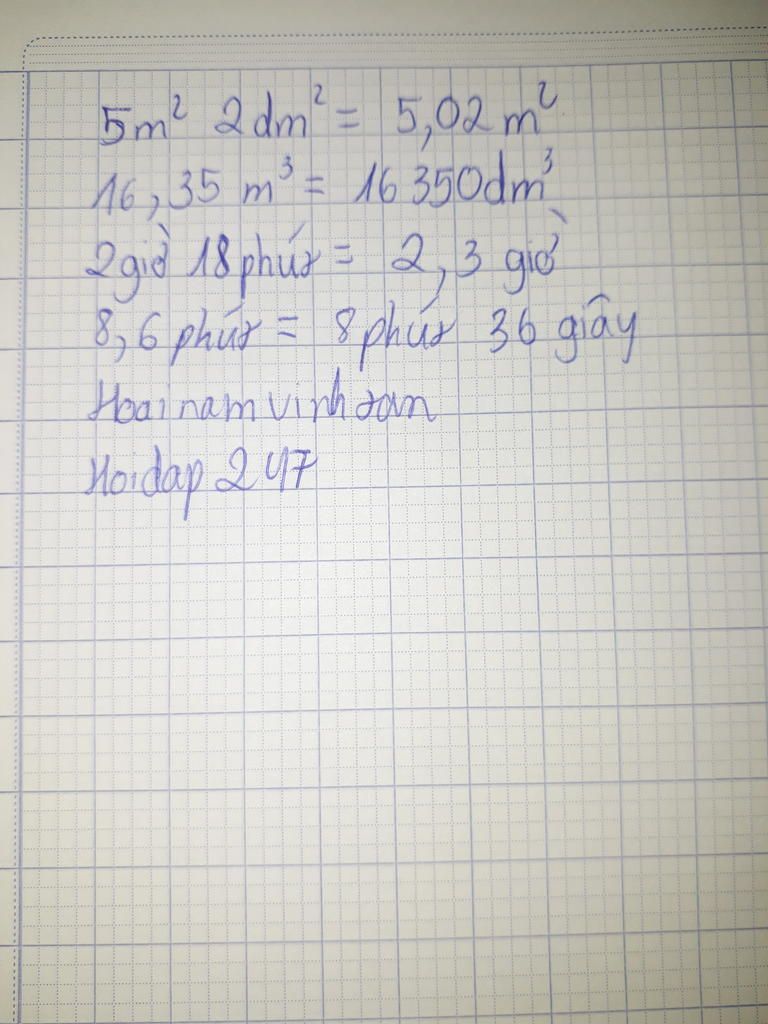 5m² 2dm² = 5,02 m²
16,35 m³ = 16 350dm³
2giờ 18phút = 2,3 giờ
8,6 phút = 8phút 36 giây
Hoainamvinhtan
Hoidap 247